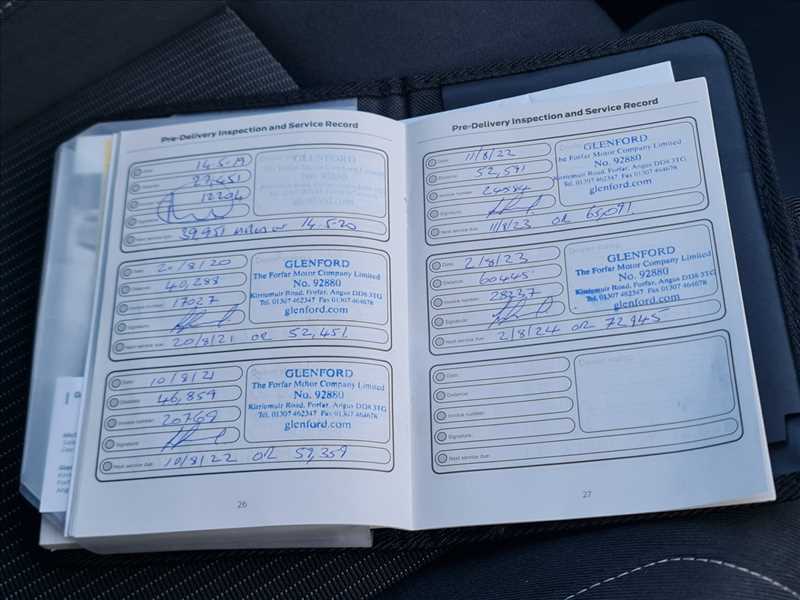 Pre-Delivery Inspection and Service Record
Date: 14.5.19
Distance: 27,451
12204
Next service due: 39,951 miles or 14.5.20
GLENFORD
Date: 20/8/20
Distance: 40,288
17027
Signature:
Next service due: 20/8/21 OR 52,451
GLENFORD
The Forfar Motor Company Limited
No. 92880
Kirriemuir Road, Forfar, Angus DD8 3TG
Tel. 01307 462347 Fax 01307 464678
glenford.com
Date: 10/8/21
Distance: 46,859
Invoice number: 20769
Signature:
Next service due: 10/8/22 OR 59,359
GLENFORD
The Forfar Motor Company Limited
No. 92880
Kirriemuir Road, Forfar, Angus DD8 3TG
Tel. 01307 462347 Fax 01307 464678
glenford.com
26
Pre-Delivery Inspection and Service Record
Date: 11/8/22
Distance: 52,591
Invoice number: 24584
Signature:
Next service due: 11/8/23 OR 65,091
GLENFORD
The Forfar Motor Company Limited
No. 92880
Kirriemuir Road, Forfar, Angus DD8 3TG
Tel. 01307 462347 Fax 01307 464678
glenford.com
Date: 2/8/23
Distance: 60445
Invoice number: 28337
Signature:
Next service due: 2/8/24 OR 72,945
GLENFORD
The Forfar Motor Company Limited
No. 92880
Kirriemuir Road, Forfar, Angus DD8 3TG
Tel. 01307 462347 Fax 01307 464678
glenford.com
Date:
Distance:
Invoice number:
Signature:
Next service due:
27